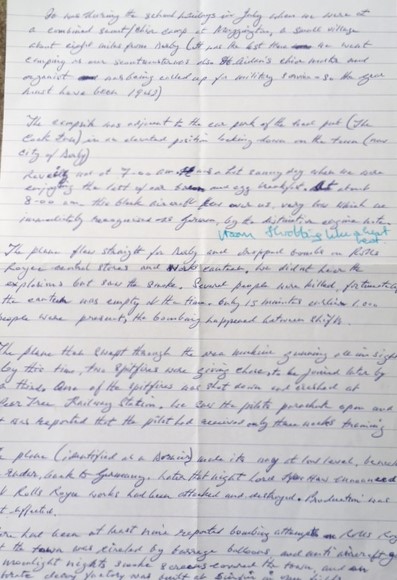 It was during the school holidays in July when we were at
a combined scout/choir camp at Muggington, a small village
about eight miles from Derby (It was the last time we went
camping as our scoutmaster also St choir master and
organist was being called up for military service so the year
must have been 1942)
The campsite was adjacent to the car park of the local pub (The
Cock Inn) in an elevated position looking down on the town (now
city of Derby)
Reveille was at 7-00 am a hot sunny day when we were
enjoying the last of our bacon and egg breakfast. At about
8-00 am this black aircraft flew over us, very low which we
immediately recognised as German, by the distinctive engine noise
vroom throbbing like a heart
beat
The plane flew straight for Derby and dropped bombs on Rolls
Royce central stores and works canteen. We did not hear the
explosions but saw the smoke. Several people were killed, fortunately
the canteen was empty at the time. Only 15 minutes earlier
people were present, the bombing happened between shifts.
The plane then swept through the area machine gunning all in sight
by this time, two Spitfires were giving chase, to be joined later by
a third. One of the spitfires was shot down and crashed at
Pear Tree Railway Station. We saw the pilots parachute open and
it was reported that the pilot had received only three weeks training
plane (identified as a Dornier) made its way at low level, beneath
radar, back to Germany. Later that night Lord Haw Haw announced
Rolls Royce works had been attacked and destroyed. Production was
affected.
had been at least nine reported bombing attempts on Rolls Royce
the town was circled by barrage balloons, and anti aircraft
moonlight nights smoke screens covered the town, and an
decoy factory was built at